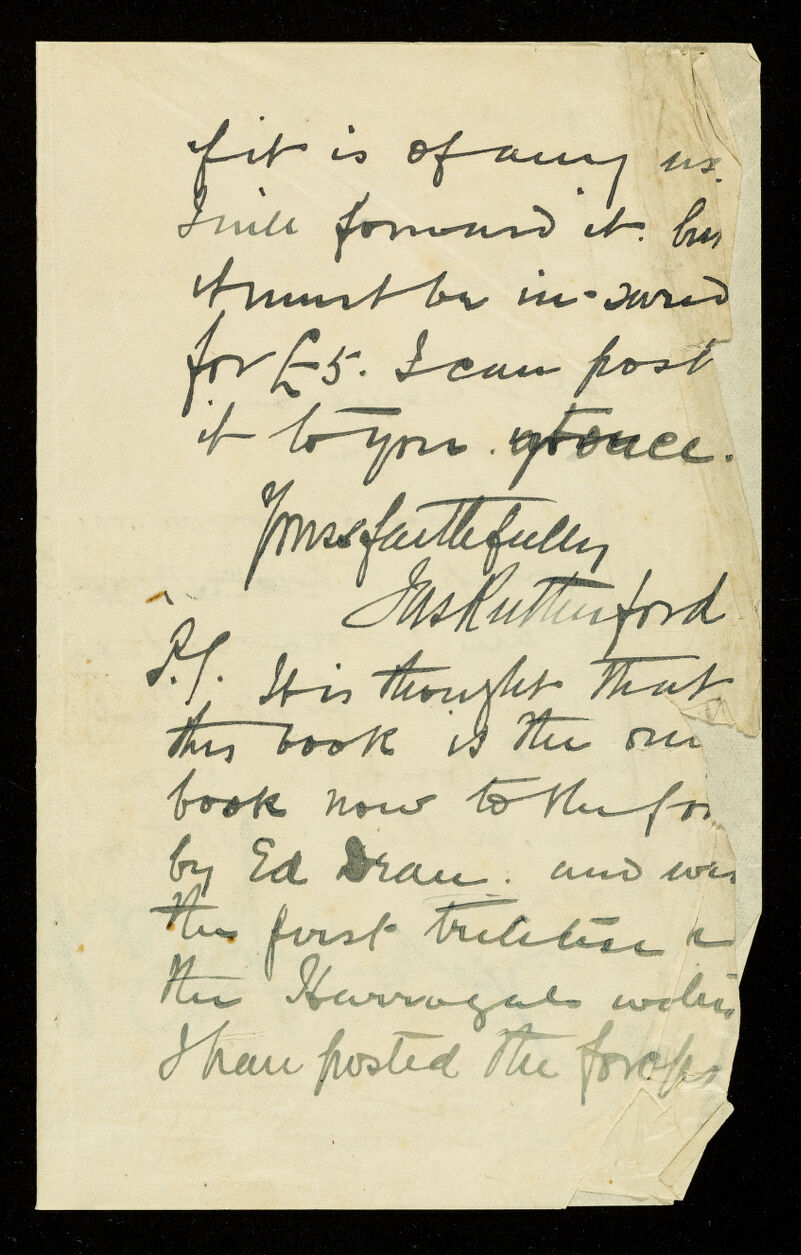 if it is of any us
I will forward it. but
it must be in-sured
for £5. I can post
it to you. at once.
Yours faithfully
Jas Rutherford
P.S. It is thought that
this book is the
book now to the fo
by Ed Dean. and was
the first
the Harrogate
I have posted the forceps